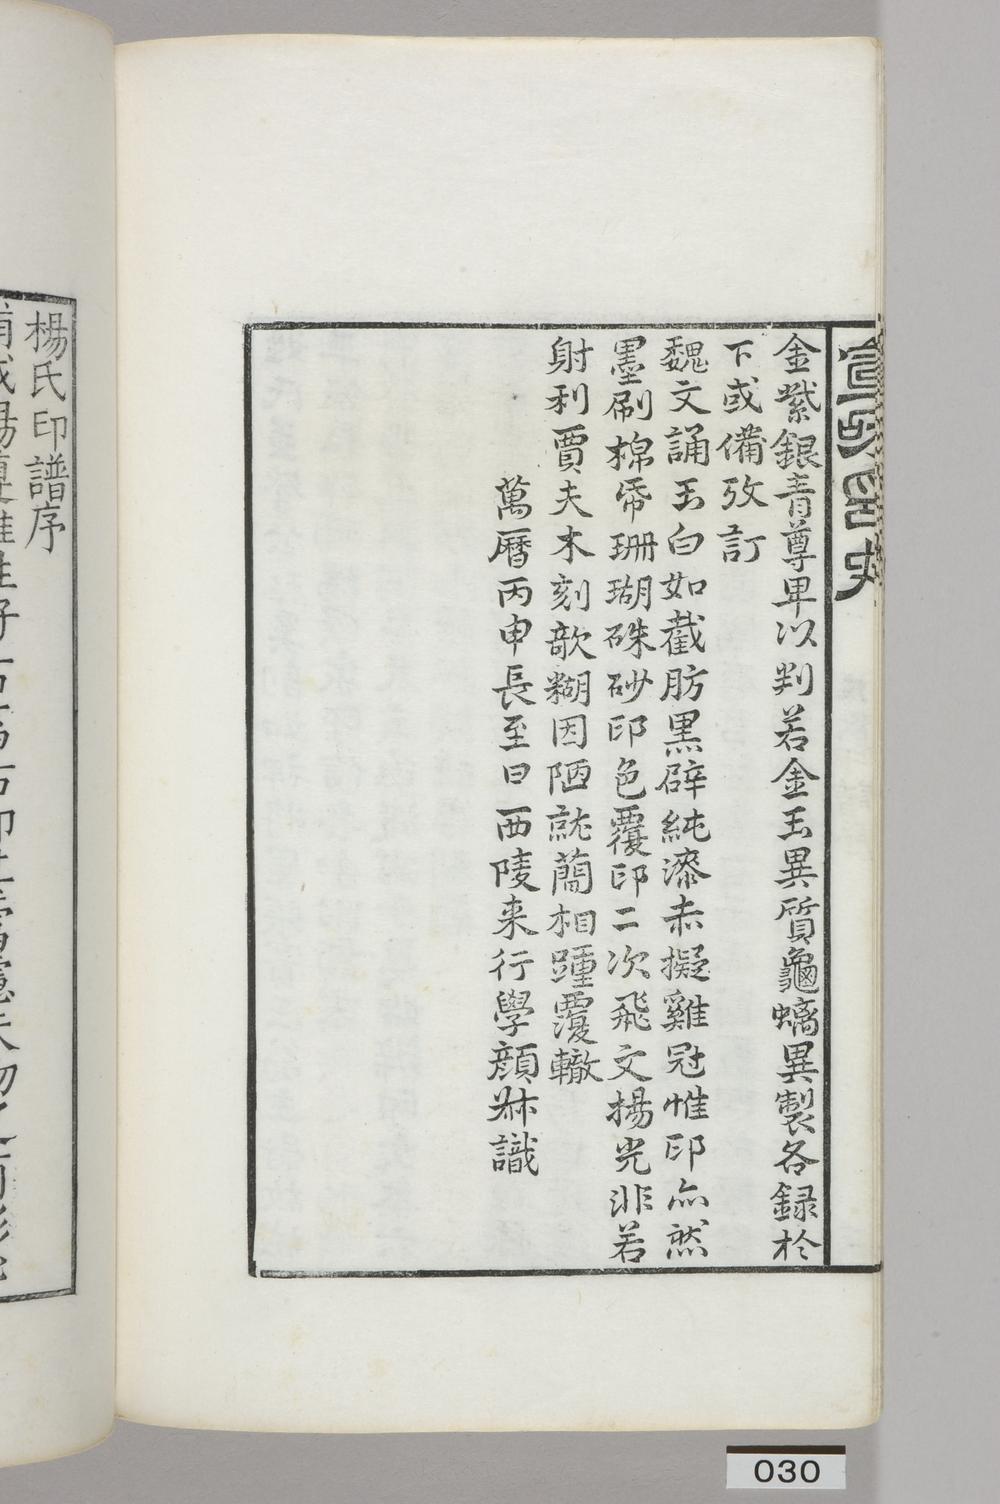 宣和印史
金紫銀青尊卑以判若金玉異質龜螭異製各録於
下或備攷訂
魏文誦玉白如截肪黒辟純漆赤擬雞冠惟印亦然
墨刷棉帋珊瑚硃砂印色覆印二次飛文揚光非若
射利賈夫木刻歆糊因陋就藺相踵覆轍
萬曆丙申長至日西陵来行學顔叔識
楊氏印譜序